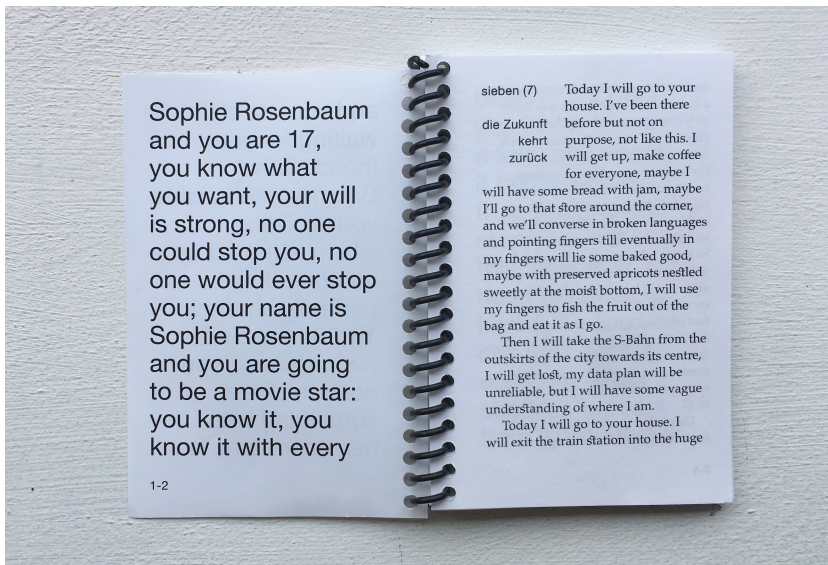 Sophie Rosenbaum
and you are 17,
you know what
you want, your will
is strong, no one
could stop you, no
one would ever stop
you; your name is
Sophie Rosenbaum
and you are going
to be a movie star:
you know it, you
know it with every
1-2
sieben (7)
die Zukunft
kehrt
zurück
Today I will go to your
house. I've been there
before but not on
purpose, not like this. I
will get up, make coffee
for everyone, maybe I
will have some bread with jam, maybe
I'll go to that store around the corner,
and we'll converse in broken languages
and pointing fingers till eventually in
my fingers will lie some baked good,
maybe with preserved apricots nestled
sweetly at the moist bottom, I will use
my fingers to fish the fruit out of the
bag and eat it as I go.
Then I will take the S-Bahn from the
outskirts of the city towards its centre,
I will get lost, my data plan will be
unreliable, but I will have some vague
understanding of where I am.
Today I will go to your house. I
will exit the train station into the huge